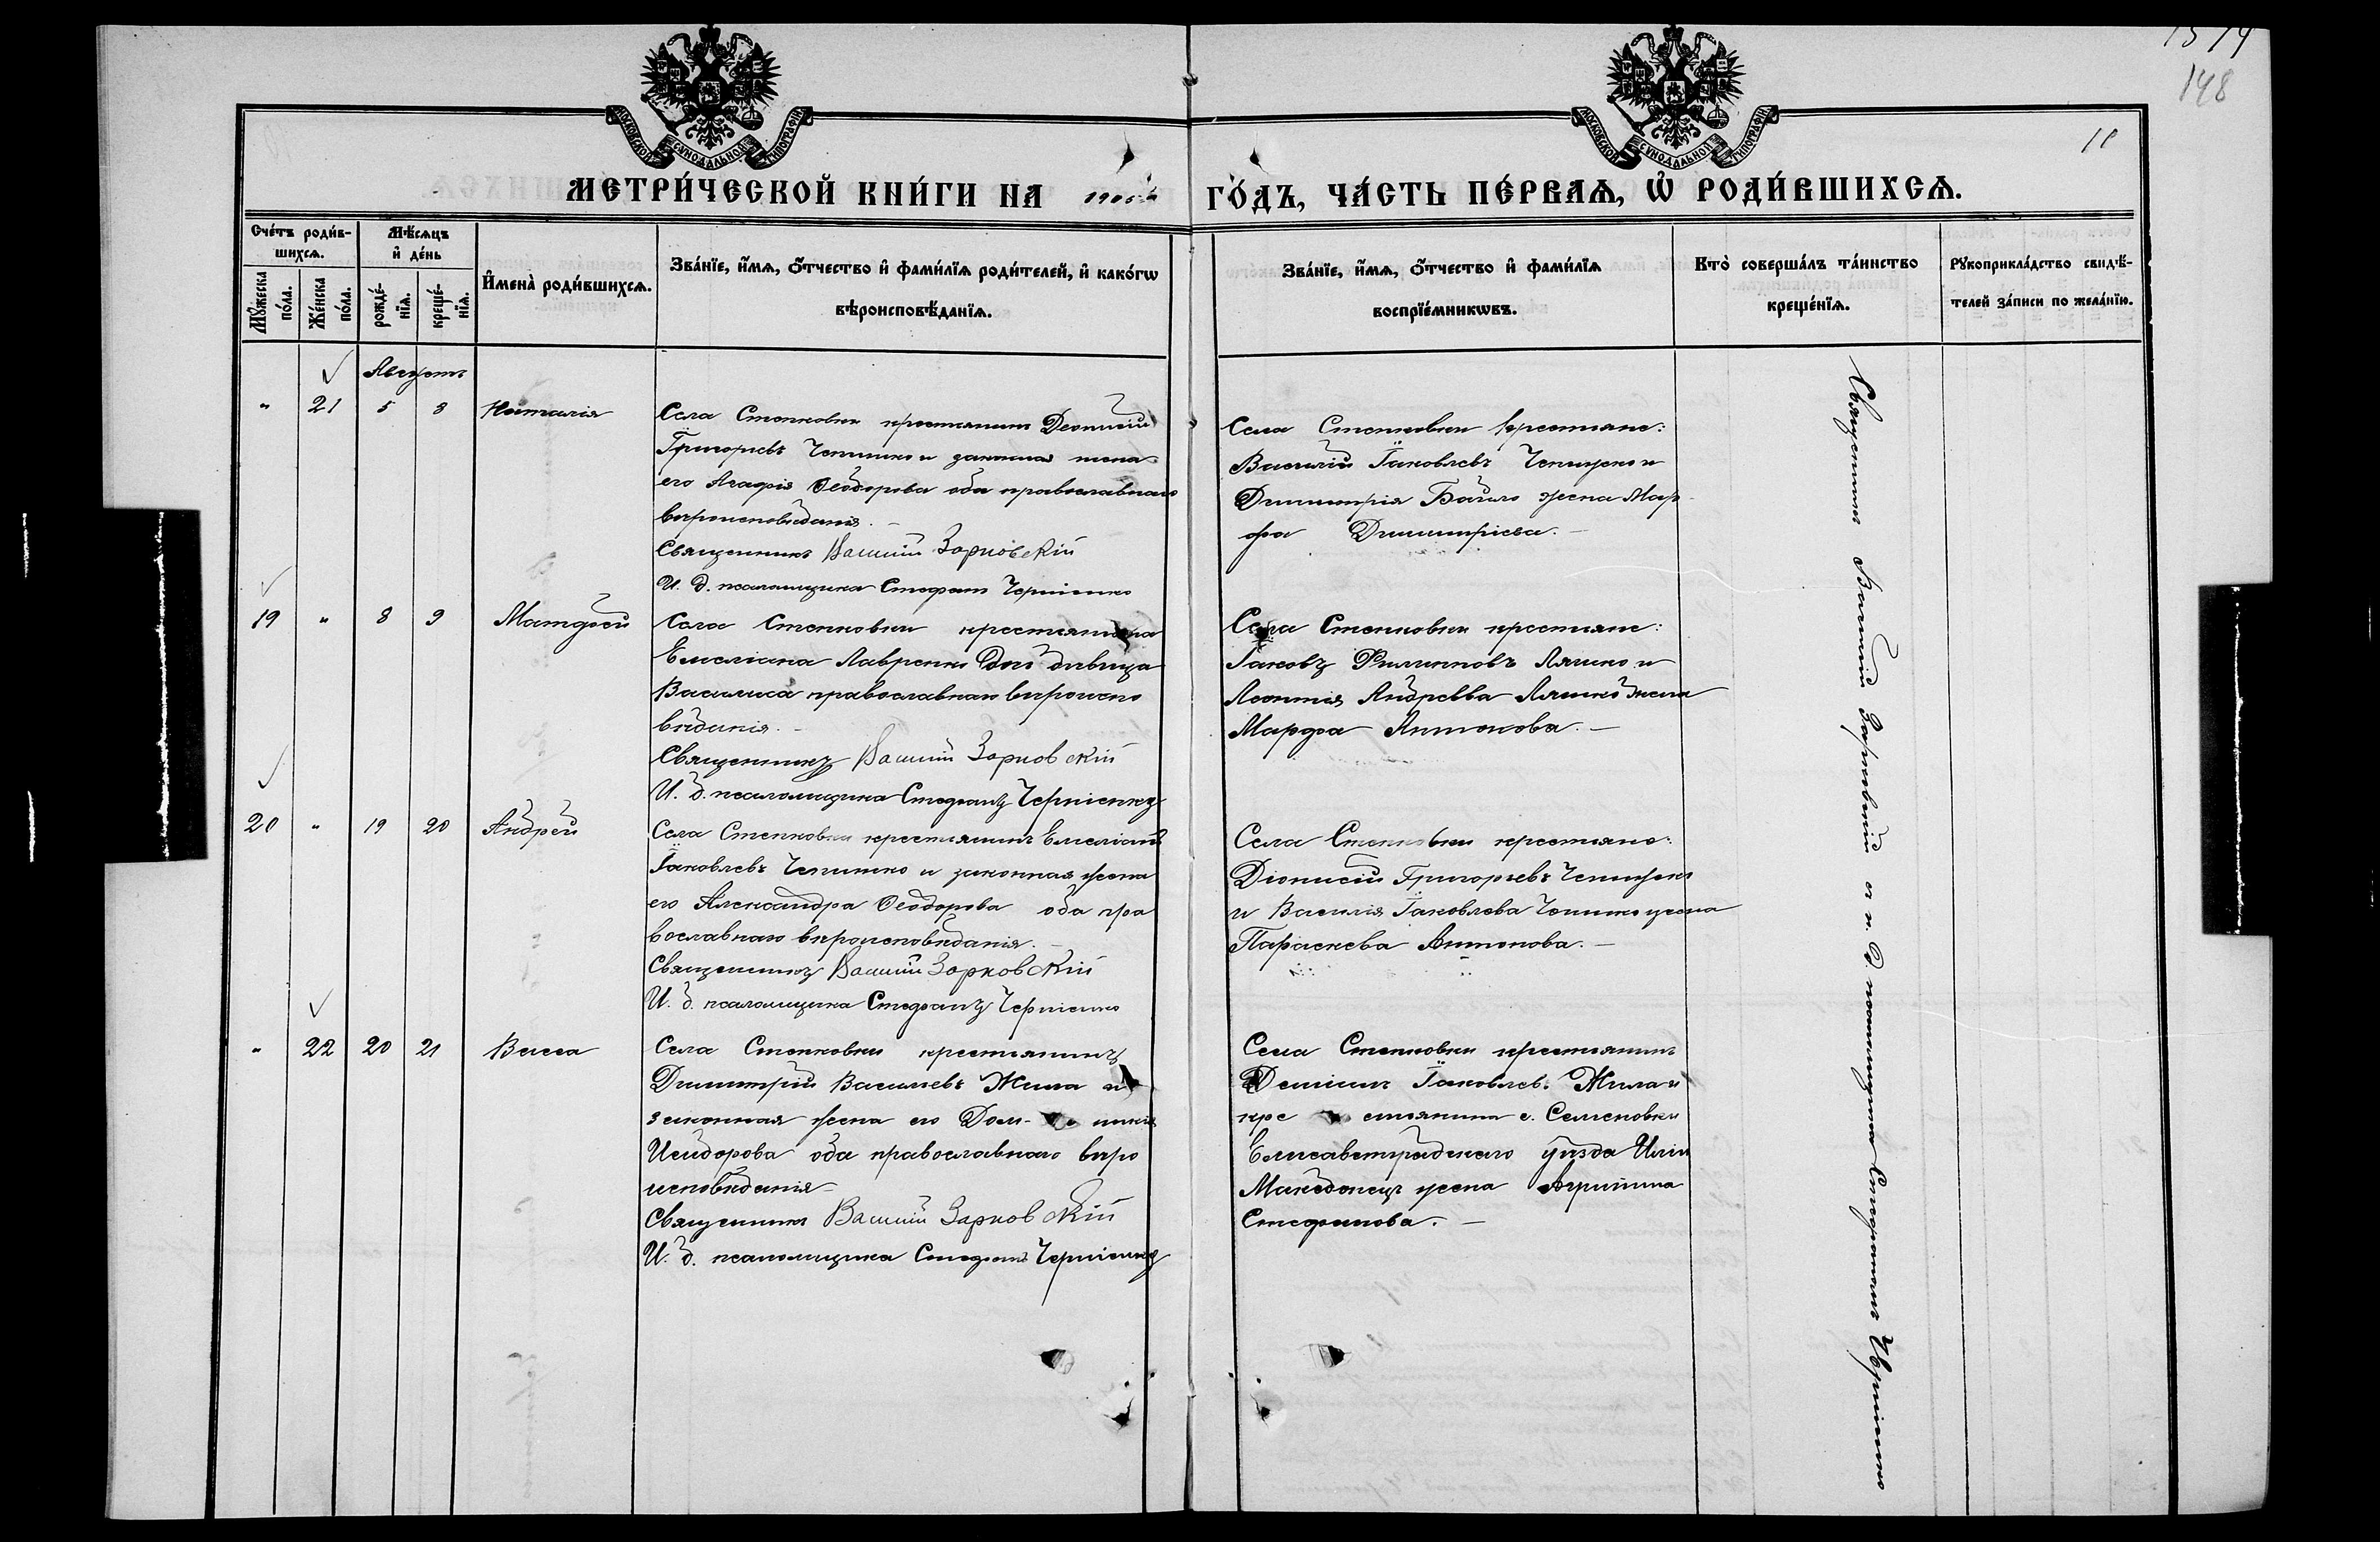 148
11
МОСКОВСКОЙ СѴНОДАЛЬНОЙ ТИПОГРАФІИ
МОСКОВСКОЙ СѴНОДАЛЬНОЙ ТИПОГРАФІИ
МЕТРИ́ЧЕСКОЙ КНИ́ГИ НА 1905й ГО́ДЪ, ЧА́СТЬ ПЕ́РВАѦ, Ѡ҆ РОДИ́ВШИХСѦ.
Сче́тъ роди́в-
шихсѧ.
Мѣ́сѧцъ
и҆ де́нь
Мꙋ́жеска
по́ла.
Же́нска
по́ла.
рожде́-
нїѧ.
креще́-
нїѧ.
И҆мена̀ роди́вшихсѧ.
Зва́нїе, и҆́мѧ, ѻ҆́тчество и҆ фами́лїѧ роди́телей, и҆ како́гѡ
вѣроисповѣ́данїѧ.
Зва́нїе, и҆́мѧ, ѻ҆́тчество и҆ фами́лїѧ
воспрїе́мникѡвъ.
Кто̀ соверша́лъ та́инство
креще́нїѧ.
Рꙋкоприкла́дство свидѣ́-
телей за́писи по жела́нїю.
Августъ
" 21 5 8 Наталія
Села Степковки крестьянинъ Деонисій
Григорьевъ Чепишко и законная жена
его Агафія Ѳеодорова оба православнаго
вѣроисповѣданія. –
Священникъ Василій Зарновскій
И. д. псаломщика Стефанъ Черніенко
Села Степковки крестьяне:
Василій Іаковлевъ Чепишко и
Димитрія Байло жена Мар
фа Димитріева. –
19 " 8 9 Матфей
Села Степковки крестьянина
Емеліана Лавренко дочь дѣвица
Василиса православнаго вѣроиспо
вѣданія. –
Священникъ Василій Зарновскій
И. д. псаломщика Стефанъ Черніенко
Села Степковки крестьяне:
Іаковъ Филипповъ Ляшко и
Леонтія Андреева Ляшко жена
Марфа Антонова. –
20 " 19 20 Андрей
Села Степковки крестьянинъ Емеліанъ
Іаковлевъ Чепишко и законная жена
его Александра Ѳеодорова оба пра
вославнаго вѣроисповѣданія. –
Священникъ Василій Зарновскій
И. д. псаломщика Стефанъ Черніенко
Села Степковки крестьяне:
Діонисій Григорьевъ Чепишко
и Василія Іаковлева Чепишко жена
Параскева Антонова. –
" 22 20 21 Васса
Села Степковки крестьянинъ
Димитрій Васильевъ Жила и
законная жена его Дом- никія
Исидорова оба православнаго вѣро
исповѣданія –
Священникъ Василій Зарновскій
И. д. псаломщика Стефанъ Черніенко
Села Степковки крестьянинъ
Іаковлевъ Жила и
кре стьянина с. Семеновки
Елисаветградскаго уѣзда Иліи
Македонецъ жена Агрипина
Стефанова. –
Священникъ Василій Зарновскій и и. д. псаломщика Стефанъ Черніенко